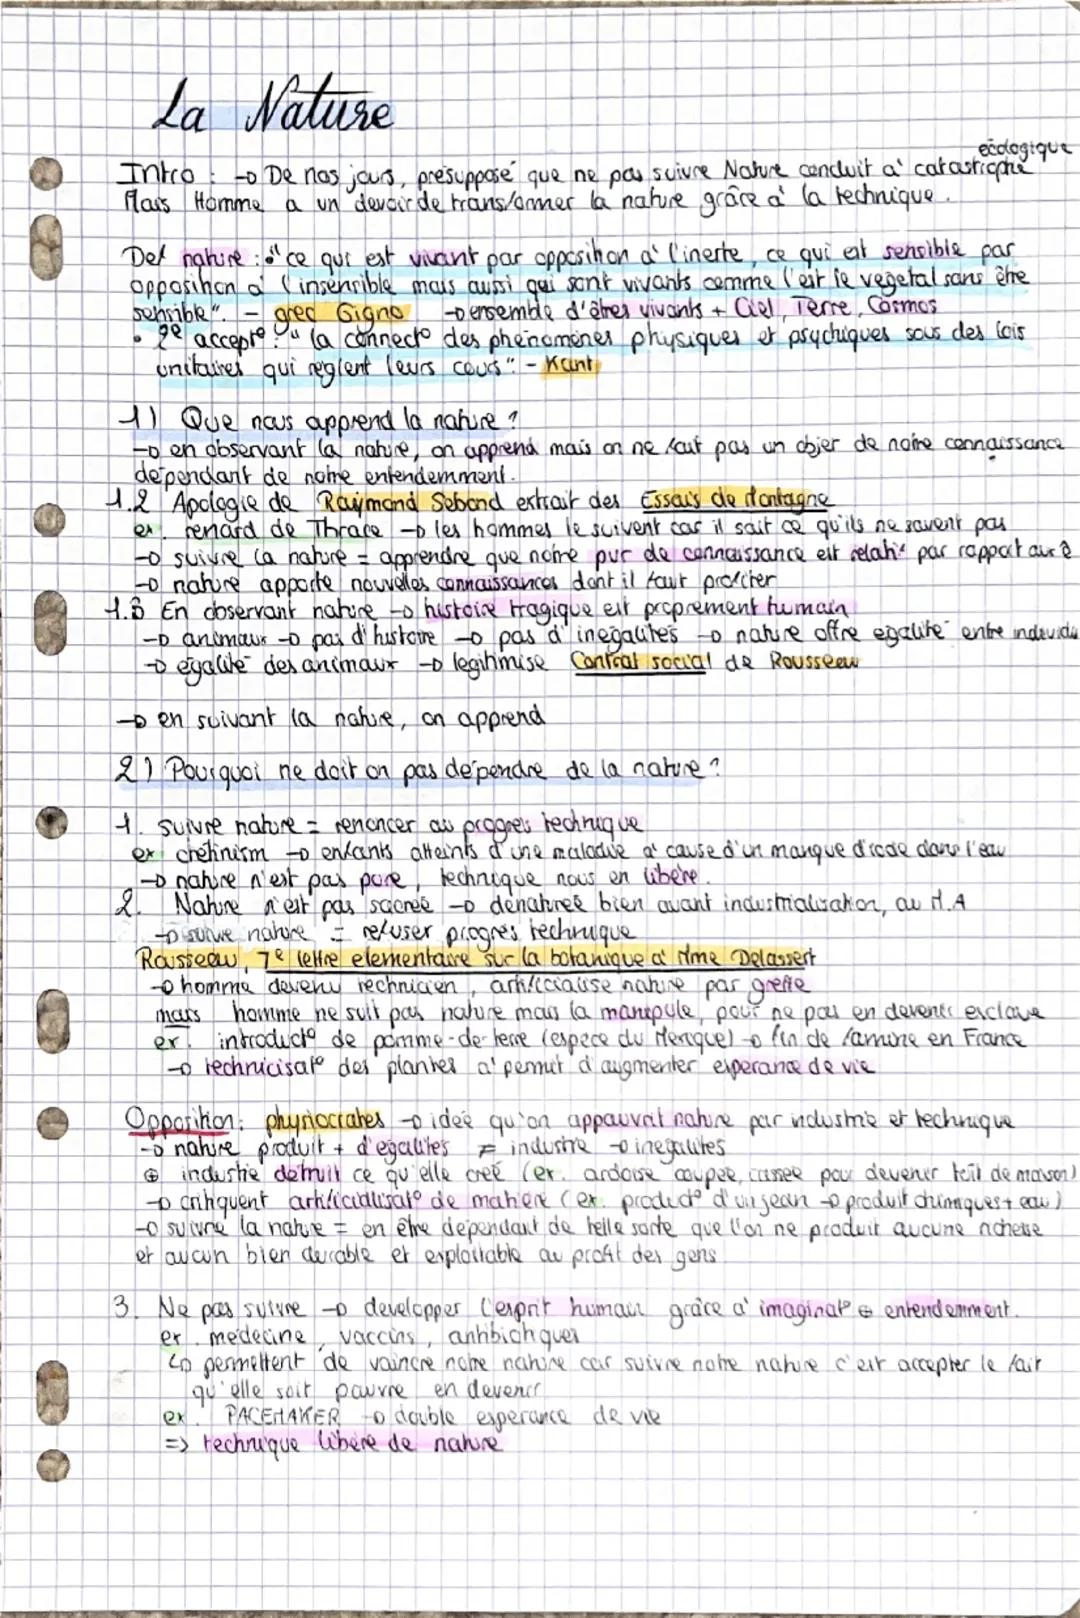 La Nature
écologique
Intro : → De nos jours, présupposé que ne pas suivre Nature conduit à catastrophe
Mais Homme a un devoir de transformer la nature grâce à la technique.
Def nature : • "ce qui est vivant par opposition à l'inerte, ce qui est sensible par
opposition à l'insensible mais aussi qui sont vivants comme l'est le végétal sans être
sensible". - grec Gigno → ensemble d'êtres vivants + Ciel, Terre, Cosmos
• 2e accept° : "la connect° des phénomènes physiques et psychiques sous des lois
unitaires qui règlent leurs cours". - Kant
1) Que nous apprend la nature ?
→ en observant la nature, on apprend mais on ne faut pas un objet de notre connaissance
dépendant de notre entendemment.
1.2 Apologie de Raymond Sebond extrait des Essais de Montagne
ex. renard de Thrace → les hommes le suivent car il sait ce qu'ils ne savent pas
→ suivre la nature = apprendre que notre pvr de connaissance est relatif par rapport aux ê
→ nature apporte nouvelles connaissances dont il faut profiter
1.3 En observant nature → histoire tragique est proprement humain
→ animaux → pas d'histoire → pas d'inégalités → nature offre égalité entre individu
→ égalité des animaux → légitimise Contrat social de Rousseau
→ en suivant la nature, on apprend
2) Pourquoi ne doit on pas dépendre de la nature ?
1. suivre nature = renoncer au progrès technique
ex crétinism → enfants atteints d'une maladie à cause d'un manque d'iode dans l'eau
→ nature n'est pas pure, technique nous en libère.
2. Nature n'est pas sacrée → dénaturée bien avant industrialisation, au M.A
→ suivre nature = refuser progrès technique
Rousseau, 7e lettre élémentaire sur la botanique à Mme Delassert
→ homme devenu technicien, artificialise nature par greffe
mais homme ne suit pas nature mais la manipule, pour ne pas en devenir esclave
ex. introduct° de pomme-de-terre (espèce du Mexique) → fin de famine en France
→ technicisat° des plantes a permit d'augmenter espérance de vie
Opposition : physiocrates → idée qu'on appauvrit nature par industrie et technique
→ nature produit + d'égalités ≠ industrie → inégalités
⊕ industrie détruit ce qu'elle créé (ex. ardoise coupée, cassée pour devenir toit de maison)
→ critiquent artificialisat° de matière (ex. product° d'un jean → produit chimiques + eau)
→ suivre la nature = en être dépendant de telle sorte que l'on ne produit aucune richesse
et aucun bien durable et exploitable au profit des gens
3. Ne pas suivre → développer l'esprit humain grâce à imaginat° ⊕ entendemment.
ex. médecine, vaccins, antibiotiques
↳ permettent de vaincre notre nature car suivre notre nature c'est accepter le fait
qu'elle soit pauvre en devenir
ex. PACEMAKER → double espérance de vie
=> technique libère de nature